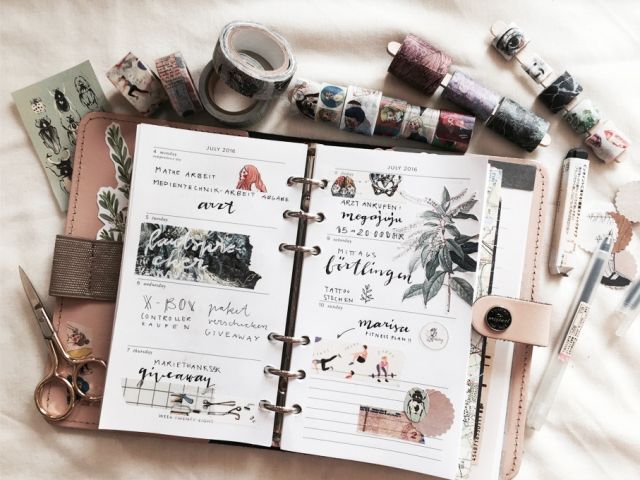 JULY 2016
4 monday
MATHE ARBEIT
MEDIENTECHNIK-ARBEIT ABGABE
arzt
5 tuesday
6 wednesday
X-BOX
CONTROLLER
KAUFEN
paket
verschicken
GIVEAWAY
7 thursday
MARIETHANKSSR
giveaway
JULY 2016
ARZT ANRUFEN!
MITTAGS
börtlingen
TATTOO
STECHEN
10 sunday
marisa
FITNESS PLAN!!